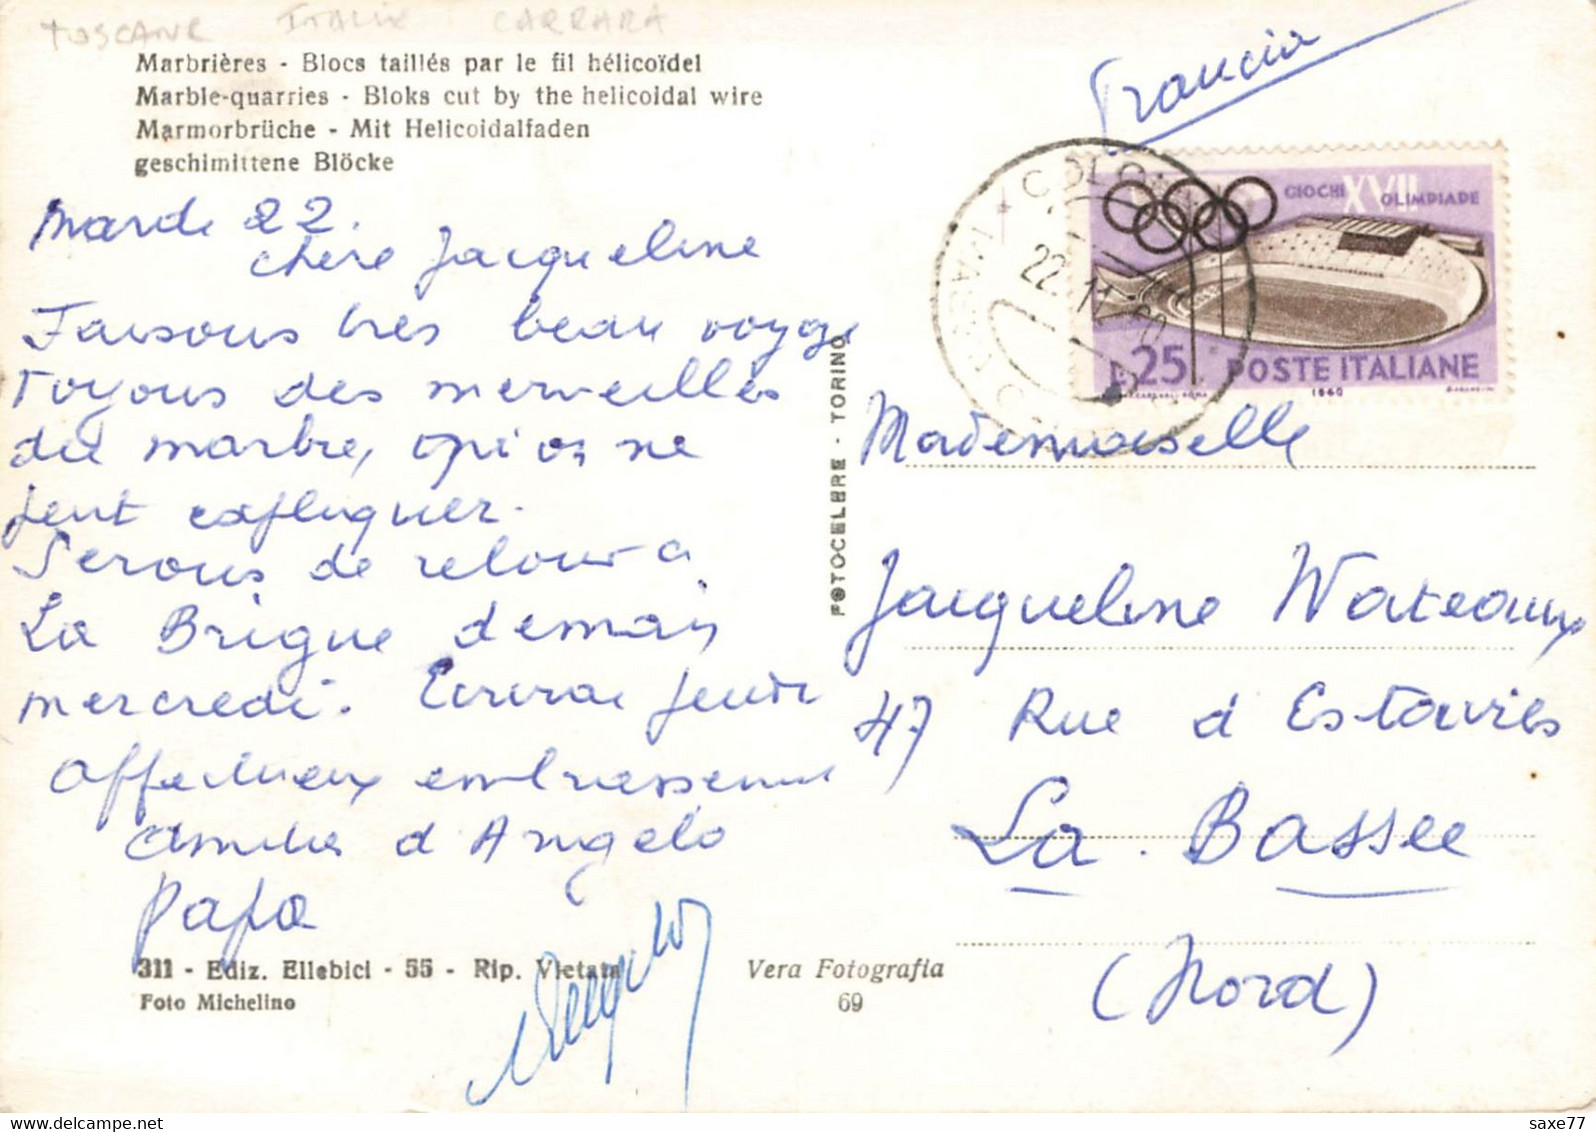 TOSCANE ITALIE CARRARA
Marbrières - Blocs taillés par le fil hélicoïdel
Marble-quarries - Bloks cut by the helicoidal wire
Marmorbrüche - Mit Helicoidalfaden
geschimittene Blöcke
Mardi 22.
chère Jacqueline
Faisons très beau voyage
Voyons des merveilles
du marbre, qu'on ne
peut expliquer.
Serons de retour a
La Brigue demain
mercredi. Ecrirai jeudi
affectueux embrassements
Amitiés d'Angelo
Papa
311 - Ediz. Ellebici - 55 - Rip. Vietata
Foto Michelino
Vera Fotografia
69
FOTOCELERE - TORINO
Francia
22.11.60
GIOCHI XVII OLIMPIADE
L.25 POSTE ITALIANE
1960
Mademoiselle
Jacqueline Wateaux
47 Rue d'Estaires
La Bassee
(Nord)
www.delcampe.net
saxe77